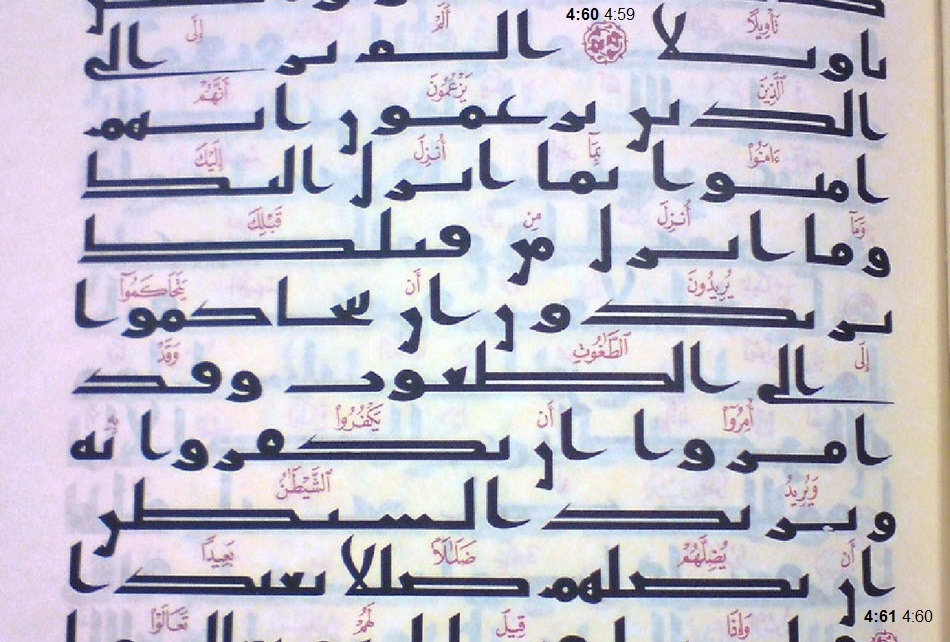 4:60 4:59
تَأْوِيلًا أَلَمْ إِلَى
تاويلا الم تر الى
ٱلَّذِينَ يَزْعُمُونَ أَنَّهُمْ
الذين يزعمون انهم
ءَامَنُوا۟ بِمَآ أُنزِلَ إِلَيْكَ
امنوا بما انزل اليك
وَمَآ أُنزِلَ مِن قَبْلِكَ
وما انزل من قبلك
يُرِيدُونَ أَن يَتَحَاكَمُوٓا۟
يريدون ان يتحاكموا
إِلَى ٱلطَّٰغُوتِ وَقَدْ
الى الطغوت وقد
أُمِرُوٓا۟ أَن يَكْفُرُوا۟ بِهِۦ
امروا ان يكفروا به
وَيُرِيدُ ٱلشَّيْطَٰنُ
ويريد الشيطن
أَن يُضِلَّهُمْ ضَلَٰلًۢا بَعِيدًا
ان يضلهم ضللا بعيدا
4:61 4:60
وَإِذَا قِيلَ لَهُمْ تَعَالَوْا۟